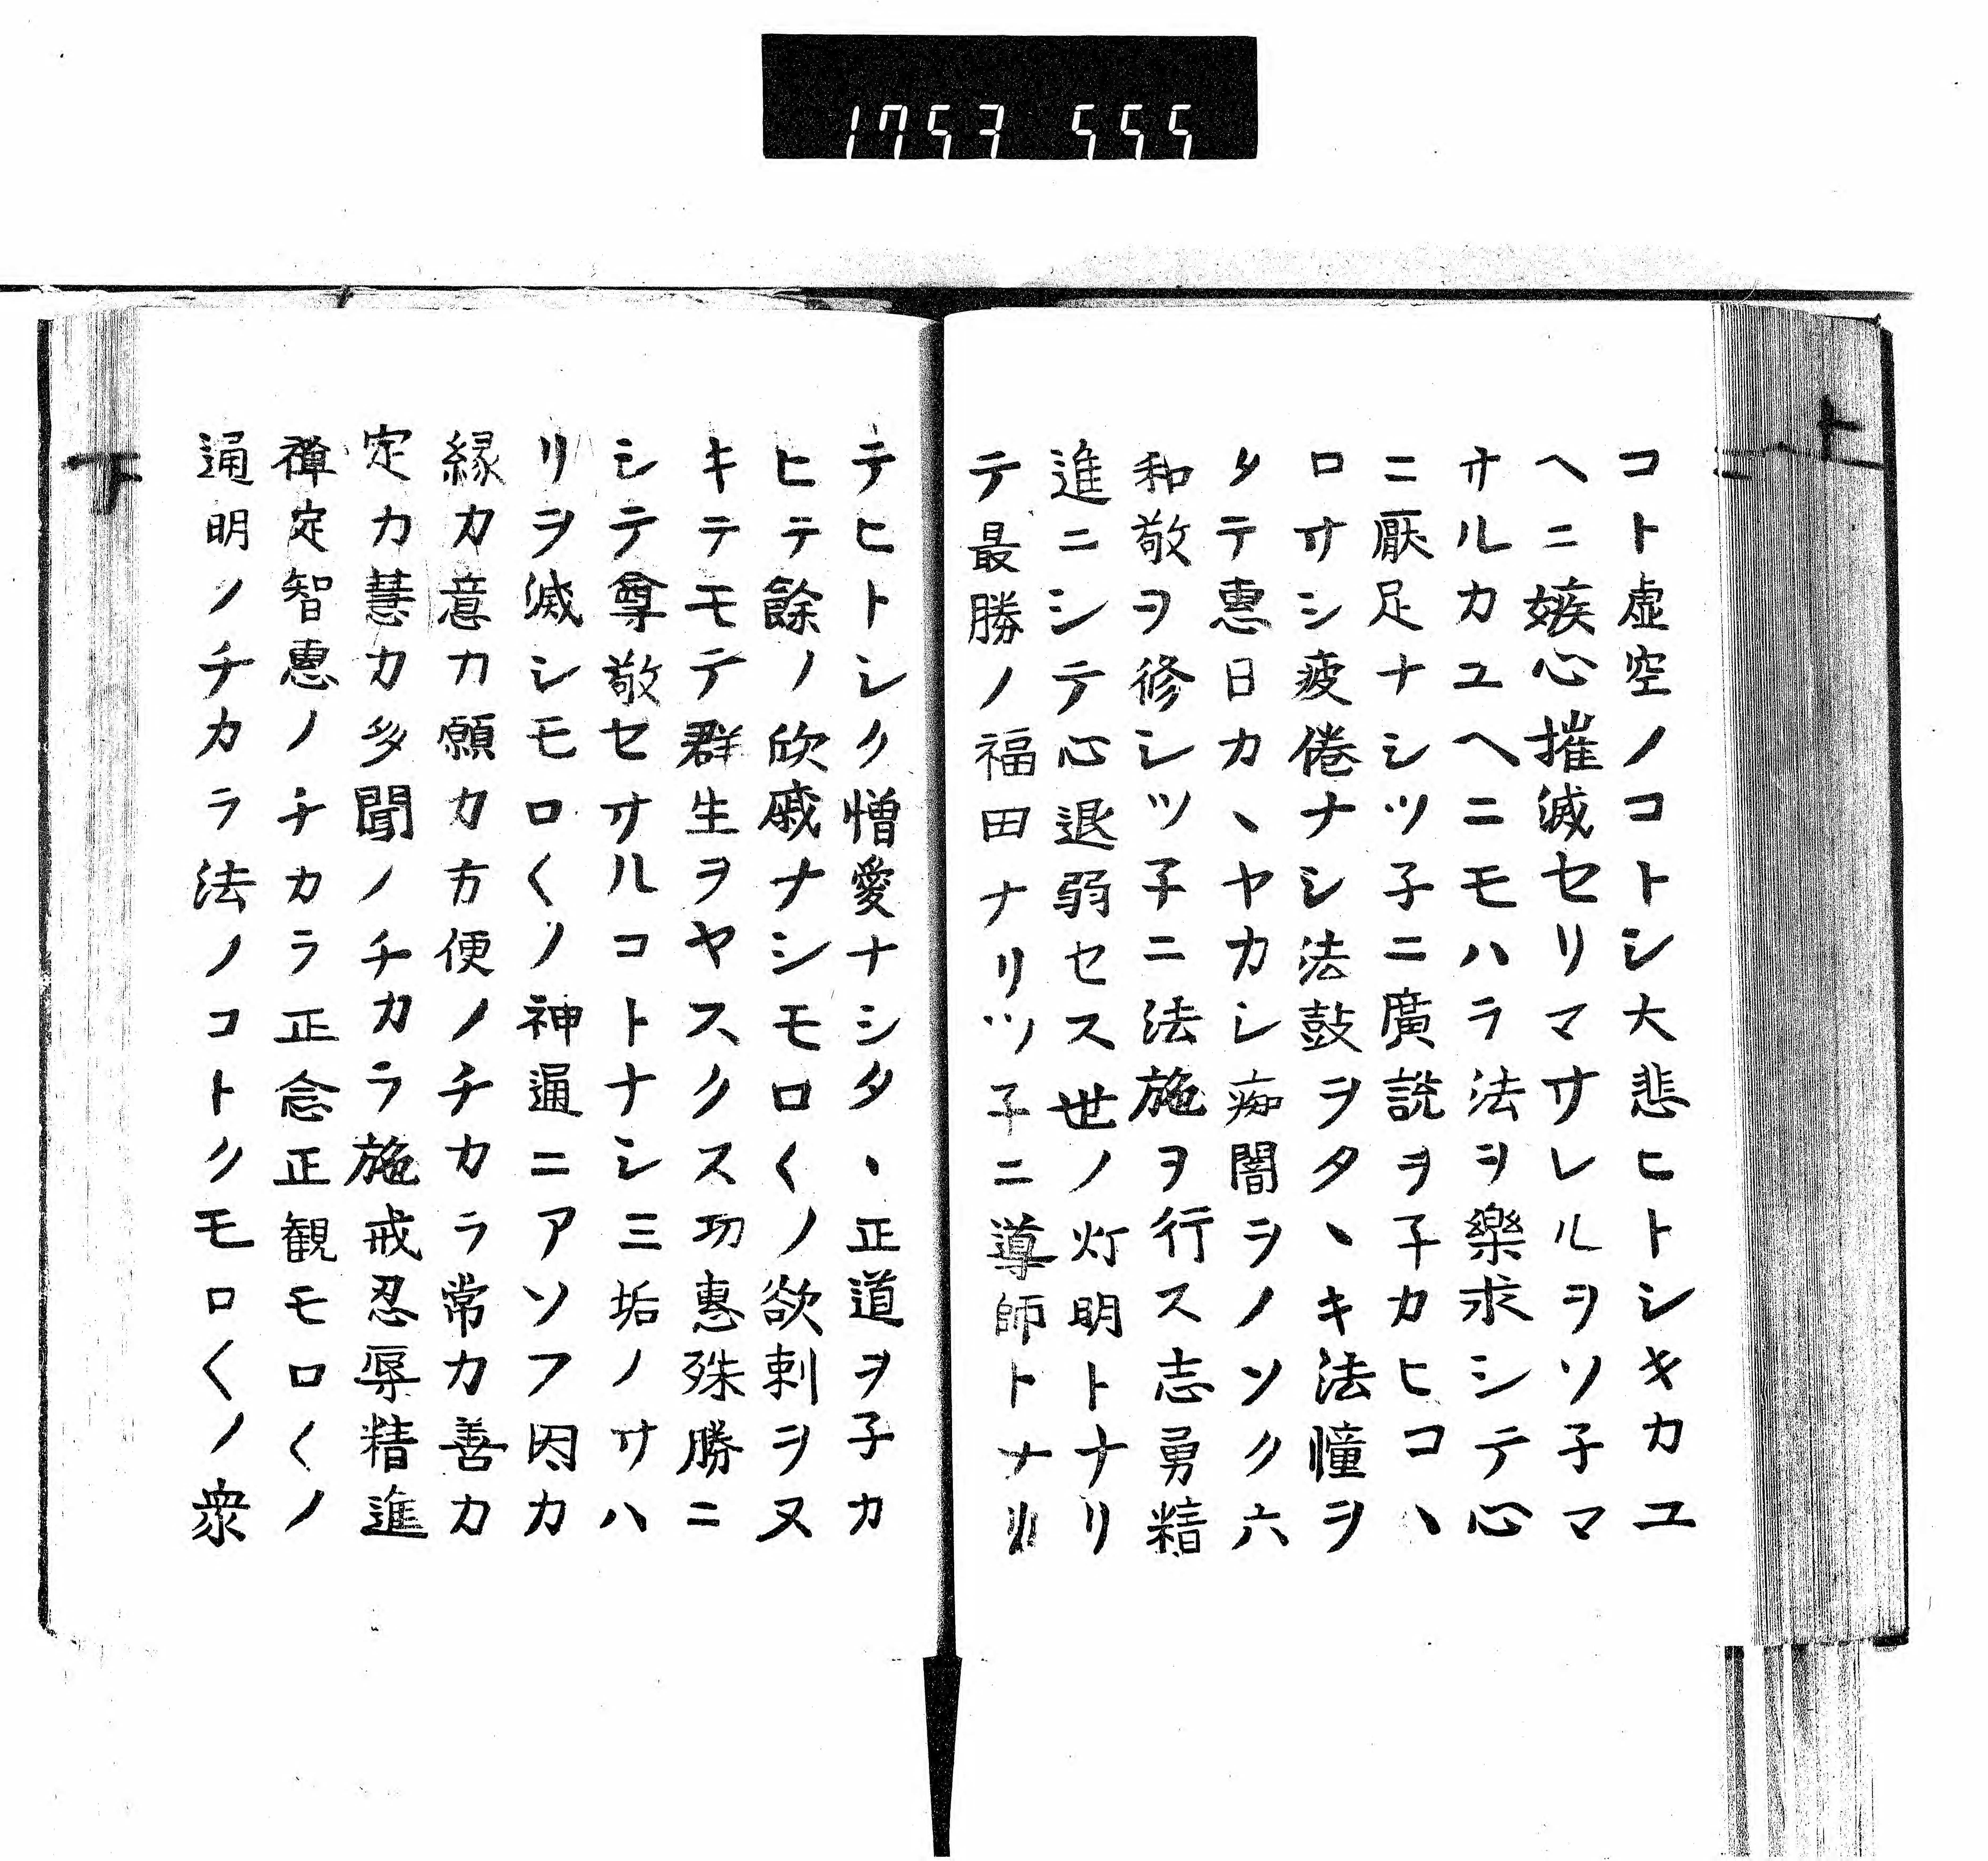 1753 555
上
コト虚空ノコトシ大悲ヒトシキカユ
ヘニ嫉心摧滅セリマサレルヲソ子マ
サルカユヘニモハラ法ヲ樂求シテ心
ニ厭足ナシツ子ニ廣説ヲ子カヒコヽ
ロサシ疲倦ナシ法鼓ヲタヽキ法憧ヲ
タテ惠日カヽヤカシ痴闇ヲノソク六
和敬ヲ修シツ子ニ法施ヲ行ス志勇精
進ニシテ心退弱セス世ノ灯明トナリ
テ最勝ノ福田ナリツ子ニ導師トナリ
テヒトシク憎愛ナシタヽ正道ヲ子カ
ヒテ餘ノ欣戚ナシモロ〱ノ欲刺ヲヌ
キテモテ群生ヲヤスクス功惠殊勝ニ
シテ尊敬セサルコトナシ三垢ノサハ
リヲ滅シモロ〱ノ神通ニアソフ因カ
縁カ意カ願カ方便ノチカラ常カ善カ
定カ慧カ多聞ノチカラ施戒忍辱精進
禅定智惠ノチカラ正念正観モロ〱ノ
通明ノチカラ法ノコトクモロ〱ノ衆
下